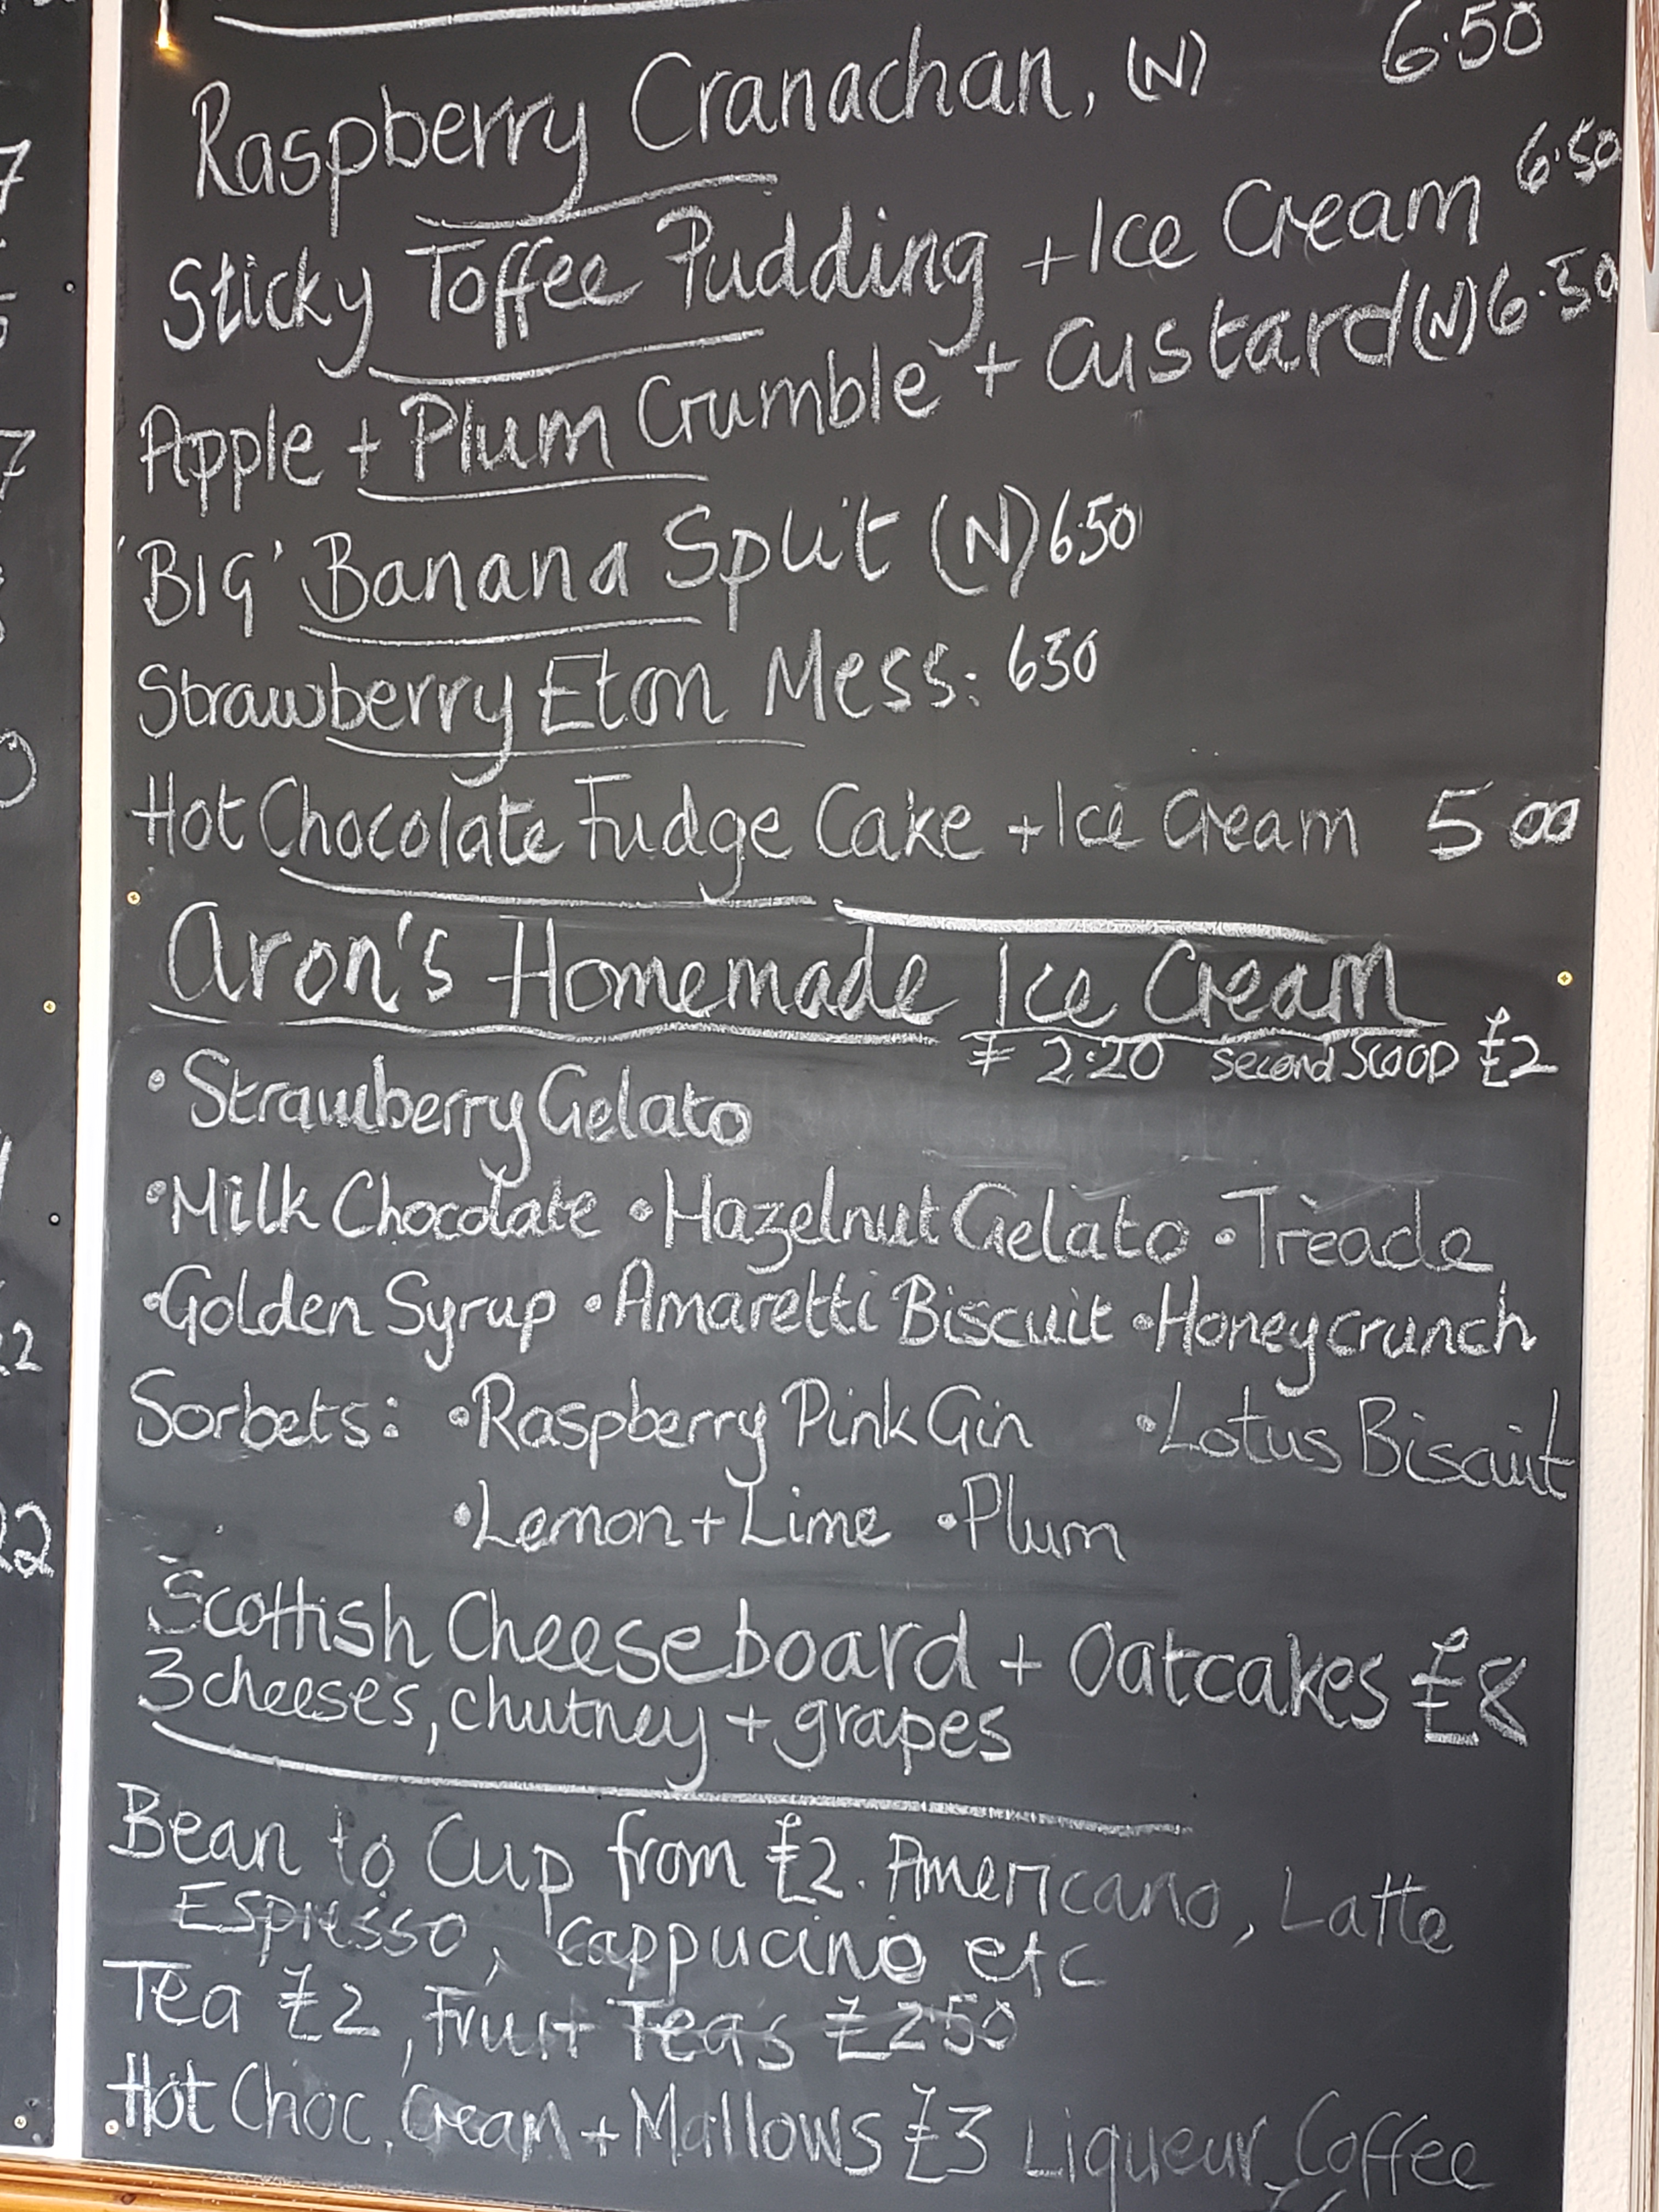 Raspberry Cranachan, (N) 6.50
Sticky Toffee Pudding + Ice Cream 6.50
Apple + Plum Crumble + Custard (N) 6.50
'BIG' Banana Split (N) 6.50
Strawberry Eton Mess: 650
Hot Chocolate Fudge Cake + Ice Cream 5 00
Aron's Homemade Ice Cream
£ 2.20 second scoop £2
• Strawberry Gelato
• Milk Chocolate • Hazelnut Gelato • Treacle
• Golden Syrup • Amaretti Biscuit • Honeycrunch
Sorbets: • Raspberry Pink Gin • Lotus Biscuit
• Lemon + Lime • Plum
Scottish Cheeseboard + Oatcakes £8
3 cheeses, chutney + grapes
Bean to Cup from £2. Americano, Latte
Espresso, Cappucino etc
Tea £2, Fruit Teas £2.50
Hot Choc, Cream + Mallows £3 Liqueur Coffee